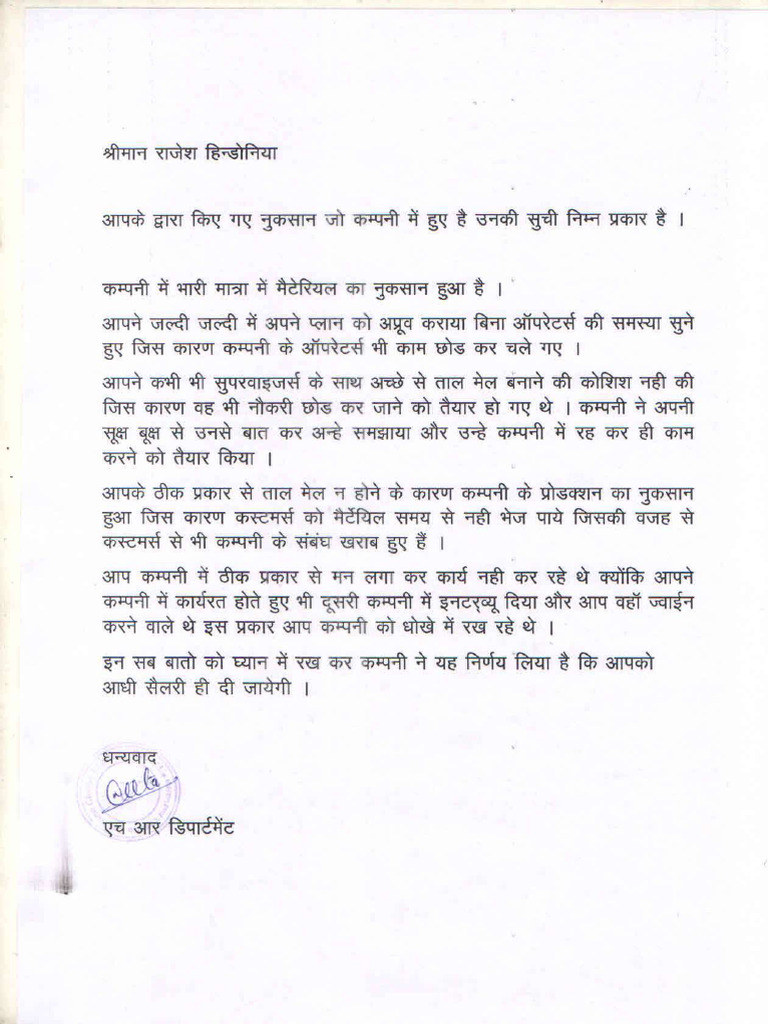 श्रीमान राजेश हिन्डोनिया
आपके द्वारा किए गए नुकसान जो कम्पनी में हुए है उनकी सुची निम्न प्रकार है ।
कम्पनी में भारी मात्रा में मैटेरियल का नुकसान हुआ है ।
आपने जल्दी जल्दी में अपने प्लान को अप्रूव कराया बिना ऑपरेटर्स की समस्या सुने
हुए जिस कारण कम्पनी के ऑपरेटर्स भी काम छोड कर चले गए ।
आपने कभी भी सुपरवाइजर्स के साथ अच्छे से ताल मेल बनाने की कोशिश नही की
जिस कारण वह भी नौकरी छोड कर जाने को तैयार हो गए थे । कम्पनी ने अपनी
सूक्ष बूक्ष से उनसे बात कर अन्हे समझाया और उन्हे कम्पनी में रह कर ही काम
करने को तैयार किया ।
आपके ठीक प्रकार से ताल मेल न होने के कारण कम्पनी के प्रोडक्शन का नुकसान
हुआ जिस कारण कस्टमर्स को मैर्टेयिल समय से नही भेज पाये जिसकी वजह से
कस्टमर्स से भी कम्पनी के संबंघ खराब हुए हैं ।
आप कम्पनी में ठीक प्रकार से मन लगा कर कार्य नही कर रहे थे क्योंकि आपने
कम्पनी में कार्यरत होते हुए भी दूसरी कम्पनी में इनटर्व्यू दिया और आप वहॉ ज्वाईन
करने वाले थे इस प्रकार आप कम्पनी को धोखे में रख रहे थे ।
इन सब बातो को घ्यान में रख कर कम्पनी ने यह निर्णय लिया है कि आपको
आधी सैलरी ही दी जायेगी ।
धन्यवाद
एच आर डिपार्टमेंट